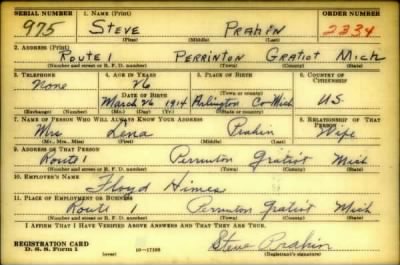 SERIAL NUMBER 1. NAME (Print) ORDER NUMBER
975 STEVE PRAHIN 2334
(First) (Middle) (Last)
2. ADDRESS (Print)
ROUTE 1 PERRINTON GRATIOT MICH
(Number and street or R. F. D. number) (Town) (County) (State)
3. TELEPHONE 4. AGE IN YEARS 5. PLACE OF BIRTH 6. COUNTRY OF CITIZENSHIP
None 26
DATE OF BIRTH (Town or county)
March 26 1914 Arlington Co Mich U.S.
(Exchange) (Number) (Mo.) (Day) (Yr.) (State or country)
7. NAME OF PERSON WHO WILL ALWAYS KNOW YOUR ADDRESS 8. RELATIONSHIP OF THAT PERSON
Mrs Lena Prahin Wife
(Mr., Mrs., Miss) (First) (Middle) (Last)
9. ADDRESS OF THAT PERSON
Route 1 Perrinton Gratiot Mich
(Number and street or R. F. D. number) (Town) (County) (State)
10. EMPLOYER'S NAME
Floyd Himes
11. PLACE OF EMPLOYMENT OR BUSINESS
Route 1 Perrinton Gratiot Mich
(Number and street or R. F. D. number) (Town) (County) (State)
I AFFIRM THAT I HAVE VERIFIED ABOVE ANSWERS AND THAT THEY ARE TRUE.
REGISTRATION CARD
D. S. S. Form 1 (over) 16—17105 Steve Prahin
(Registrant's signature)